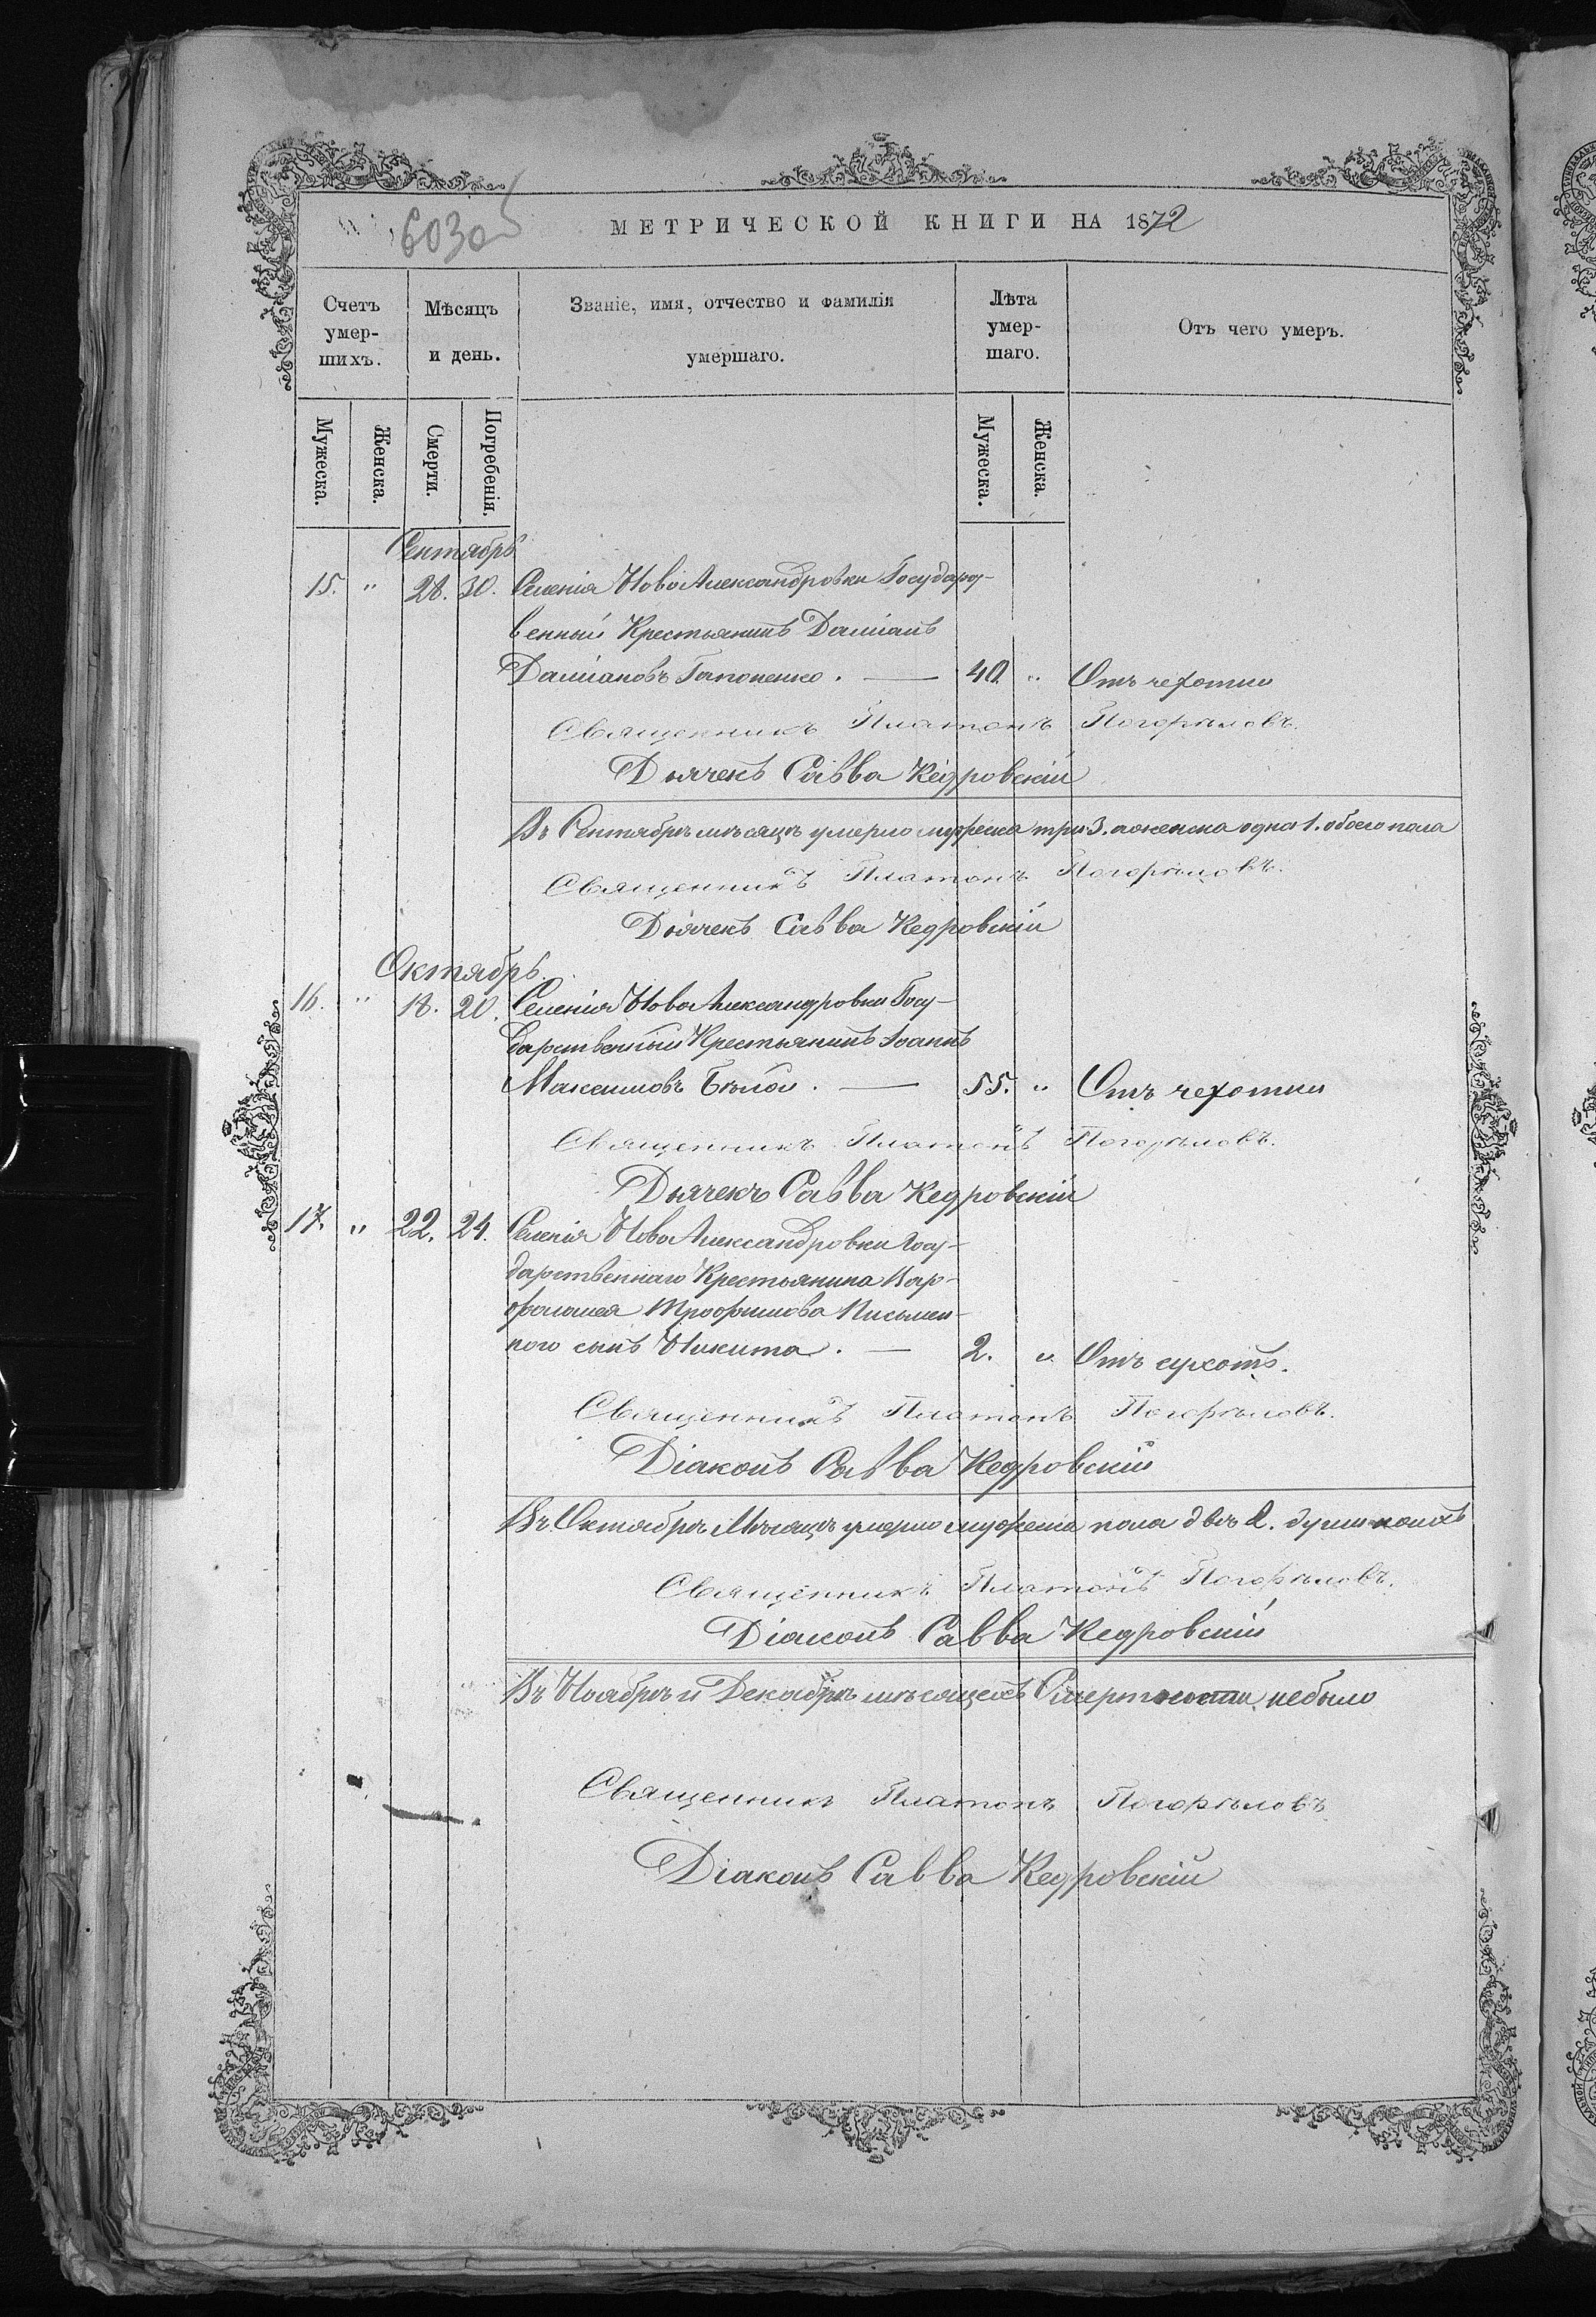 6030
МЕТРИЧЕСКОЙ КНИГИ НА 1872
Счетъ умер-ших.
Мѣсяцъ и день.
Званіе, имя, отчество и фамилія умершаго.
Лѣта умер-шаго.
Отъ чего умеръ.
Мужеска.
Женска.
Смерти.
Погребенія.
Мужеска.
Женска.
Сентябрь
15. " 28. 30. Селенія НовоАлександровки Государс-
венный Крестьянинъ Даміанъ
Даміановъ Гапоненко. — 40. " Отъ чехотки
Священникъ Платонъ Погорѣловъ.
Дьячекъ Савва Кедровскій
Въ Сентябрѣ мѣсяцѣ умерло мужеска три 3. а женска одна 1. обоего пола
Священникъ Платонъ Погорѣловъ.
Дьячекъ Савва Кедровскій
Октябрь.
16. " 18. 20. Селенія НовоАлександровки Госу-
дарственный Крестьянинъ Іоаннъ
Максимовъ Бѣлой. — 55. " Отъ чехотки
Священникъ Платонъ Погорѣловъ.
Дьячекъ Савва Кедровскій
17. " 22. 24. Селенія НовоАлександровки Госу-
дарственнаго Крестьянина Вар-
фоломея Трофимова Письмен-
ного сынъ Никита. — 2. " Отъ сухотъ.
Священникъ Платонъ Погорѣловъ.
Діаконъ Савва Кедровскій
Въ Октябрѣ Мѣсяцѣ умерло мужеска пола двѣ 2. души
Священникъ Платонъ Погорѣловъ.
Діаконъ Савва Кедровскій
Въ Ноябрѣ и Декабрѣ мѣсяцехъ Смертности небыло
Священникъ Платонъ Погорѣловъ
Діаконъ Савва Кедровскій